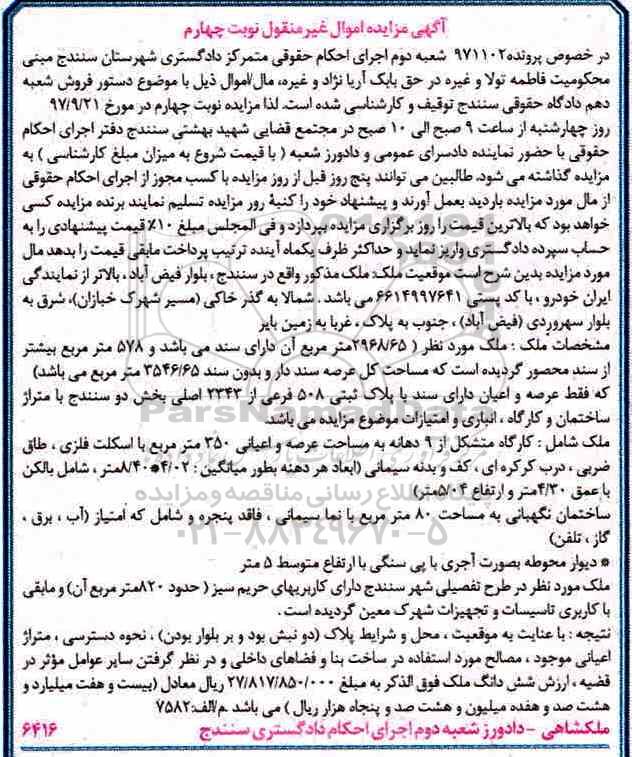 آگهی مزایده اموال غیرمنقول نوبت چهارم
در خصوص پرونده ۹۷۱۱۰۲ شعبه دوم اجرای احکام حقوقی متمرکز دادگستری شهرستان سنندج مبنی
محکومیت فاطمه تولا و غیره در حق بابک آریا نژاد و غیره، مال/اموال ذیل با موضوع دستور فروش شعبه
دهم دادگاه حقوقی سنندج توقیف و کارشناسی شده است. لذا مزایده نوبت چهارم در مورخ ۹۷/۹/۲۱
روز چهارشنبه از ساعت ۹ صبح الی ۱۰ صبح در مجتمع قضایی شهید بهشتی سنندج دفتر اجرای احکام
حقوقی با حضور نماینده دادسرای عمومی و دادورز شعبه ( با قیمت شروع به میزان مبلغ کارشناسی ) به
مزایده گذاشته می شود. طالبین می توانند پنج روز قبل از روز مزایده با کسب مجوز از اجرای احکام حقوقی
از مال مورد مزایده بازدید بعمل آورند و پیشنهاد خود را کتبۀ روز مزایده تسلیم نمایند برنده مزایده کسی
خواهد بود که بالاترین قیمت را روز برگزاری مزایده بپردازد و فی المجلس مبلغ ۱۰٪ قیمت پیشنهادی را به
حساب سپرده دادگستری واریز نماید و حداکثر ظرف یکماه آینده ترتیب پرداخت مابقی قیمت را بدهد مال
مورد مزایده بدین شرح است موقعیت ملک: ملک مذکور واقع در سنندج ، بلوار فیض آباد ، بالاتر از نمایندگی
ایران خودرو ، با کد پستی ۶۶۱۴۹۹۷۶۴۱ می باشد . شمالا به گذر خاکی (مسیر شهرک خبازان)، شرق به
بلوار سهروردی (فیض آباد) ، جنوب به پلاک ، غربا به زمین بایر
مشخصات ملک : ملک مورد نظر ( ۲۹۶۸/۶۵متر مربع آن دارای سند می باشد و ۵۷۸ متر مربع بیشتر
از سند محصور گردیده است که مساحت کل عرصه سند دار و بدون سند ۳۵۴۶/۶۵ متر مربع می باشد)
که فقط عرصه و اعیان دارای سند با پلاک ثبتی ۵۰۸ فرعی از ۲۳۴۳ اصلی بخش دو سنندج با متراژ
ساختمان و کارگاه ، انباری و امتیازات موضوع مزایده می باشد.
ملک شامل : کارگاه متشکل از ۹ دهانه به مساحت عرصه و اعیانی ۳۵۰ متر مربع با اسکلت فلزی ، طاق
ضربی ، درب کرکره ای ، کف و بدنه سیمانی (ابعاد هر دهنه بطور میانگین : ۴/۰۲*۸/۴۰متر ، شامل بالکن
با عمق ۴/۳۰متر و ارتفاع ۵/۰۴متر)
ساختمان نگهبانی به مساحت ۸۰ متر مربع با نما سیمانی ، فاقد پنجره و شامل که امتیاز (آب ، برق ،
گاز ، تلفن)
* دیوار محوطه بصورت آجری با پی سنگی با ارتفاع متوسط ۵ متر
ملک مورد نظر در طرح تفصیلی شهر سنندج دارای کاربریهای حریم سبز ( حدود ۸۲۰متر مربع آن) و مابقی
با کاربری تاسیسات و تجهیزات شهرک معین گردیده است .
نتیجه : با عنایت به موقعیت ، محل و شرایط پلاک (دو نبش بود و بر بلوار بودن) ، نحوه دسترسی ، متراژ
اعیانی موجود ، مصالح مورد استفاده در ساخت بنا و فضاهای داخلی و در نظر گرفتن سایر عوامل مؤثر در
قضیه ، ارزش شش دانگ ملک فوق الذکر به مبلغ ۲۷/۸۱۷/۸۵۰/۰۰۰ ریال معادل (بیست و هفت میلیارد و
هشت صد و هفده میلیون و هشت صد و پنجاه هزار ریال ) می باشد .م/الف:۷۵۸۲
ملکشاهی - دادورز شعبه دوم اجرای احکام دادگستری سنندج ۶۴۱۶
ParsNamadData
۰۲۱-۸۸۳۴۹۶۷۰-۵